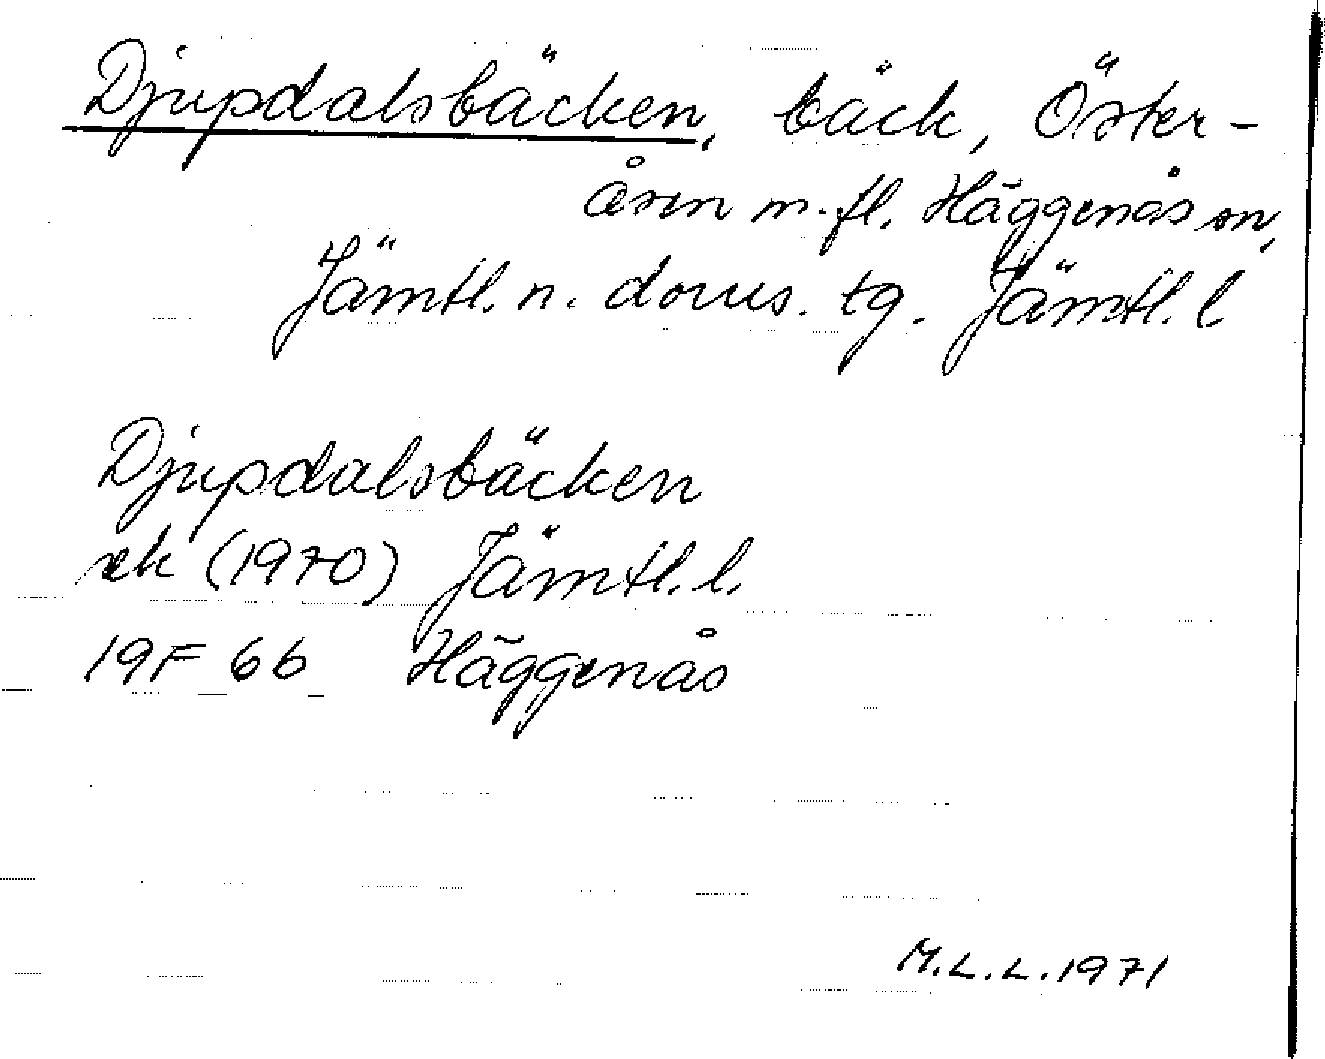 Djupdalsbäcken, bäck, Öster-
åsen m. fl. Häggenås sn,
Jämtl. n. doms. tg. Jämtl. l
Djupdalsbäcken
ek (1970) Jämtl. l.
19F 6b Häggenås
M.L.L. 1971